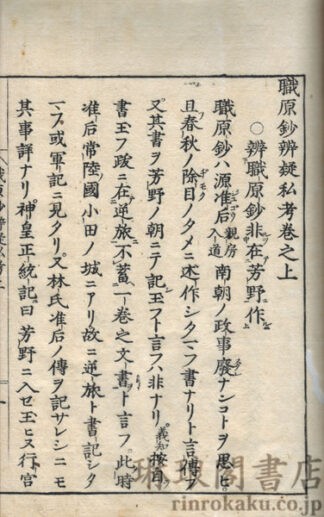 職原鈔辨疑私考卷之上
○辨職原鈔非在芳野作
職原鈔ハ源准后親房入道南朝ノ政事廢ナンコトヲ思ヒ
且春秋ノ除目ノタメニ述作シタマフ書ナリト言傳フ
又其書ヲ芳野ノ朝ニテ記玉フト言フハ非ナリ義知按自
書玉フ跋ニ在逆旅不蓄一卷之文書ト言フ此時
准后常陸國小田ノ城ニアリ故ニ逆旅ト書記シタ
マフ或軍記ニ見タリ又林氏准后ノ傳ヲ記サレシニモ
其事詳ナリ神皇正統記曰芳野ニ入セ玉ヒヌ行宮
琳琅閣書店
rinrokaku.co.jp